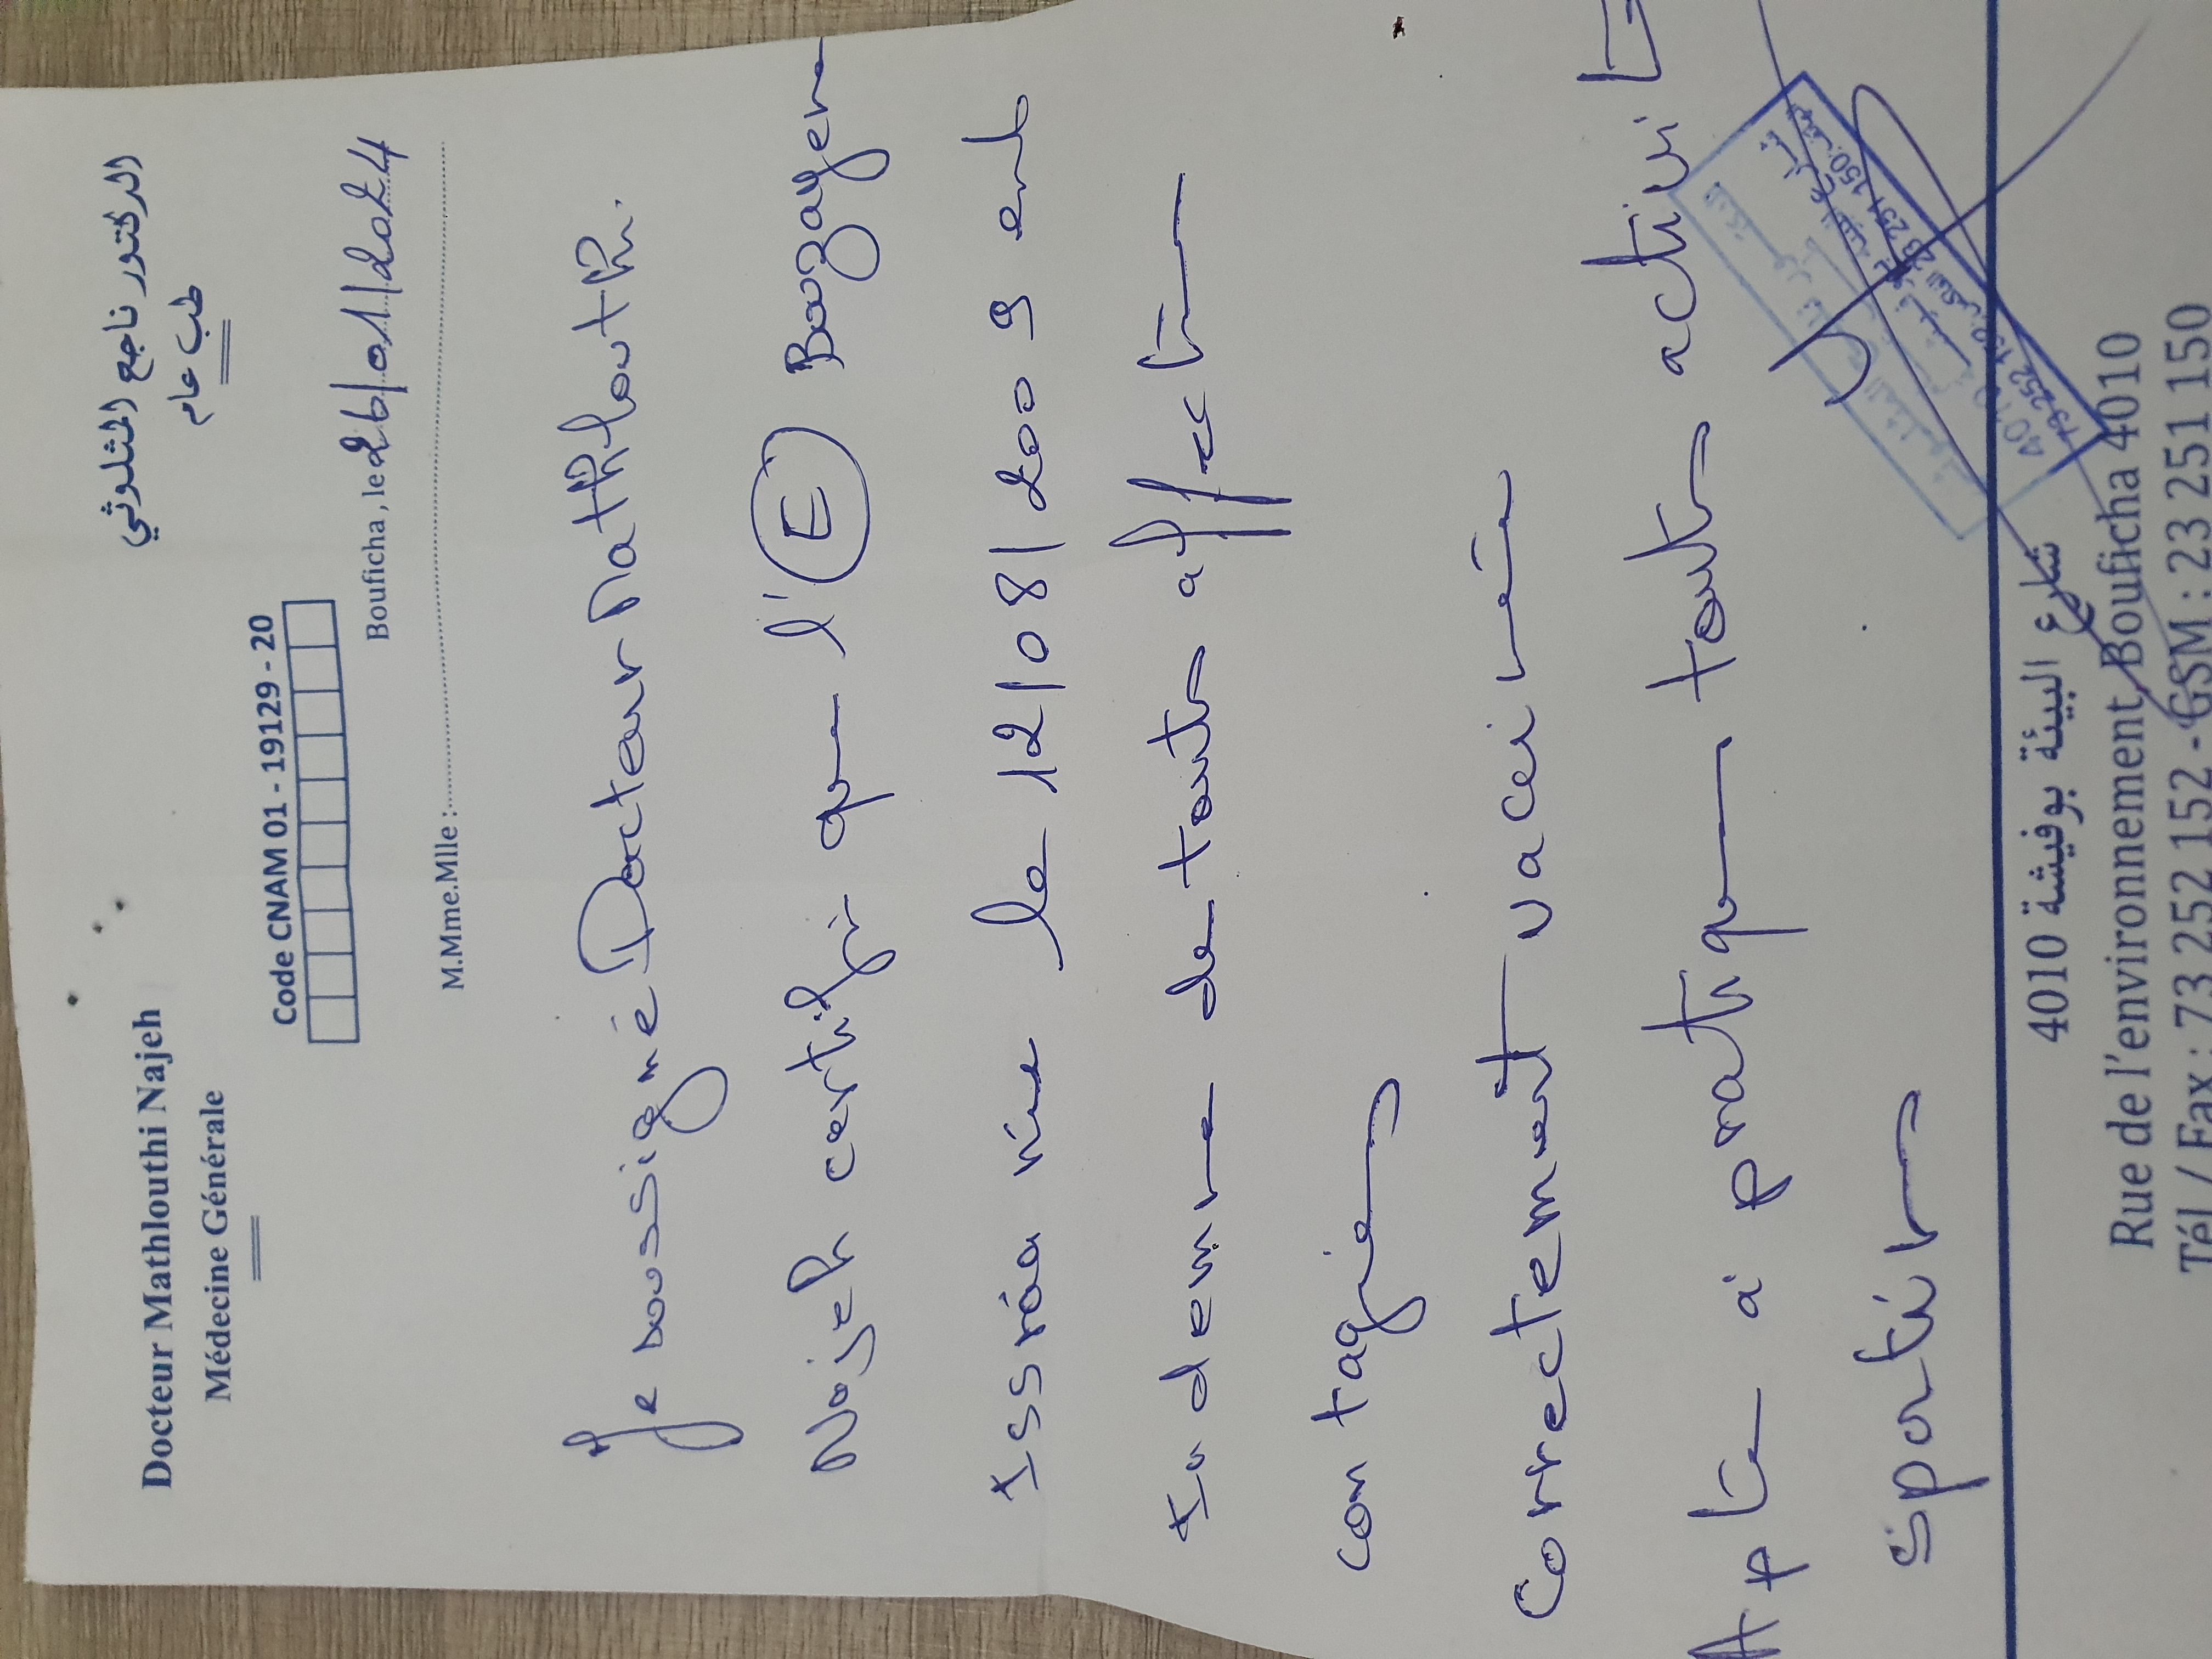 Docteur Mathlouthi Najeh
Médecine Générale
الدكتور ناجع المثلوثي
طب عام
Code CNAM 01 - 19129 - 20
Bouficha, le 26/01/2024
M.Mme.Mlle :
Je soussigné Docteur Mathlouthi
Najeh certifie que l'(E) Bouzayen
Issraa née le 12/08/2009 est
Indemne de toute affection
contagieuse
Correctement vaccinée
Apte à pratique toute activité
Sportive
73 252 150
23 251 150
شارع البيئة بوفيشة 4010
Rue de l'environnement Bouficha 4010
Tél / Fax : 73 252 152 - GSM : 23 251 150